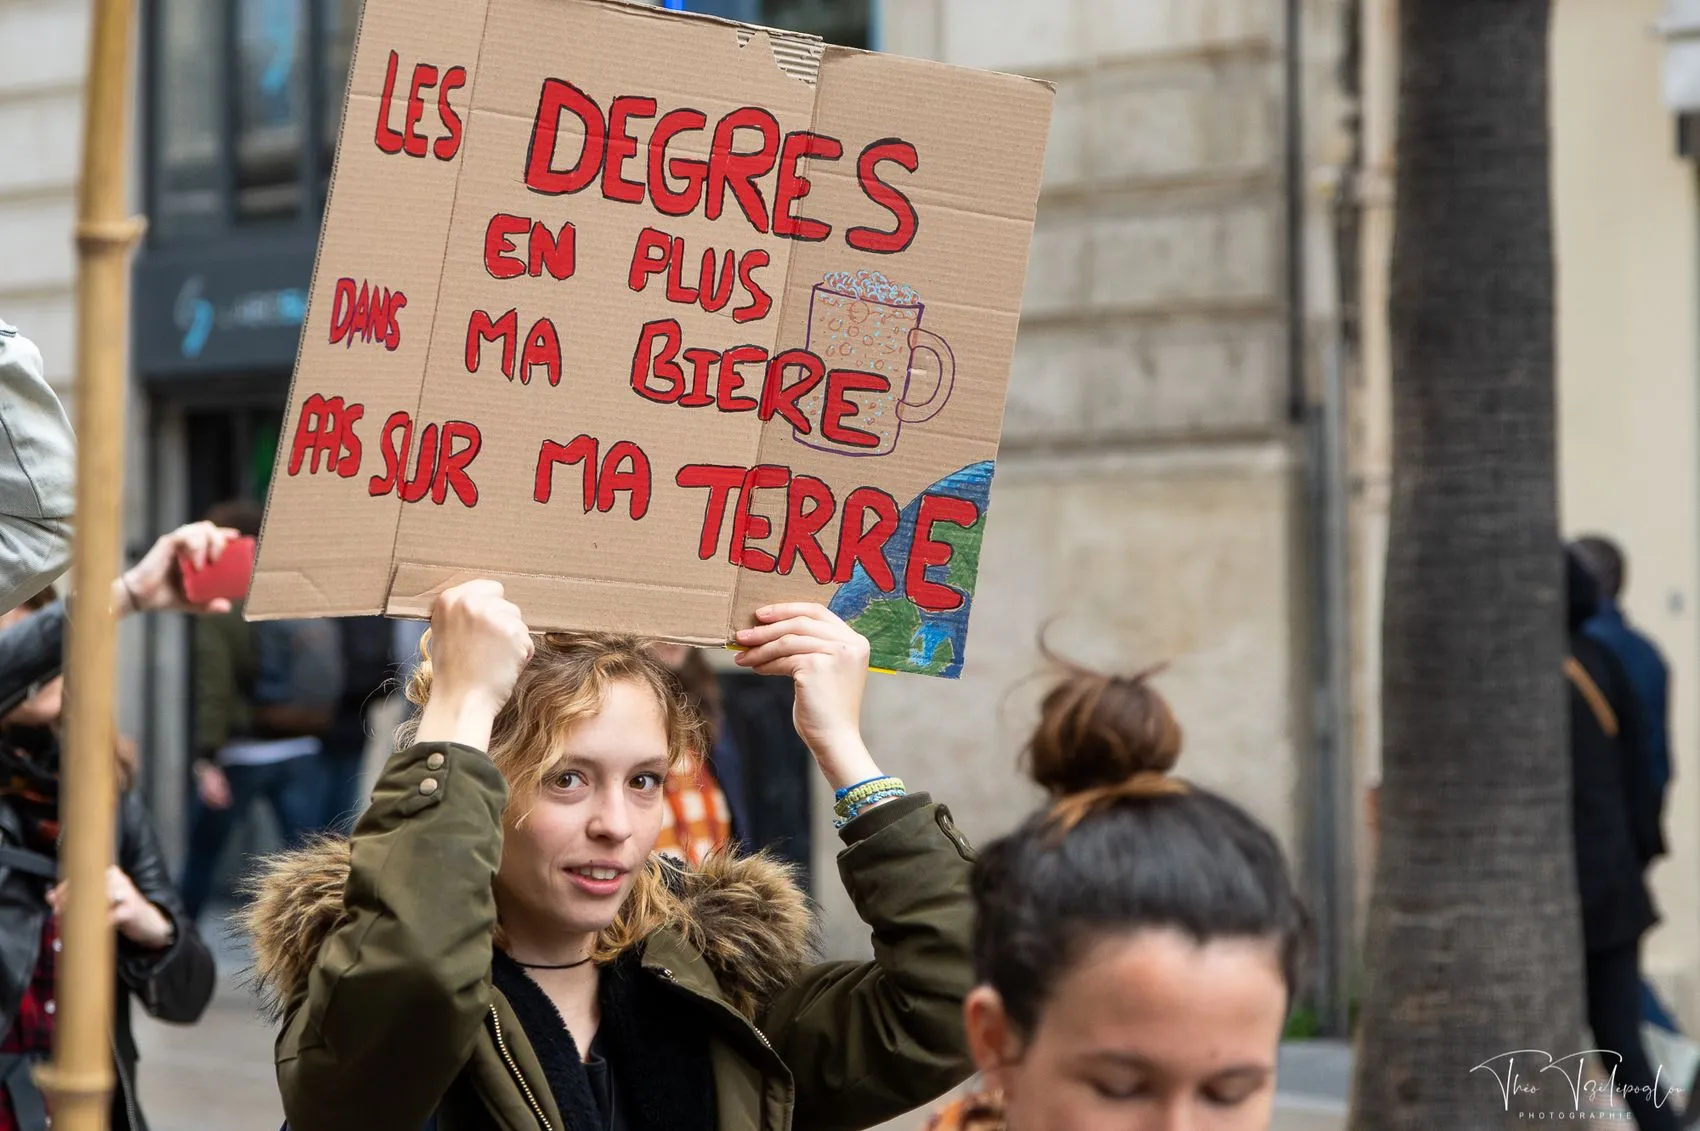 LES DEGRES
EN PLUS
DANS MA BIERE
PAS SUR MA TERRE
Théo Tzélépoglou
PHOTOGRAPHIE